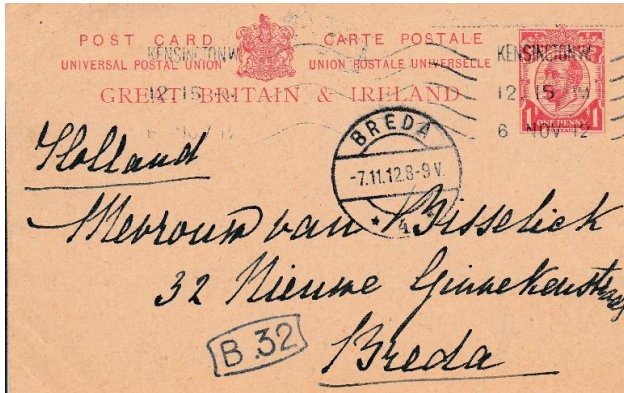 POST CARD CARTE POSTALE
UNIVERSAL POSTAL UNION UNION POSTALE UNIVERSELLE
GREAT BRITAIN & IRELAND
KENSINGTON W.
12.15 M
6 NOV 1
KENSINGTON W.
12.15 M
6 NOV 12
1 ONE PENNY 1
BREDA
-7.11.12.8-9 V.
* 4
Holland
Mevrouw van Bisselick
32 Nieuwe Ginnekenstraat
Breda
B.32